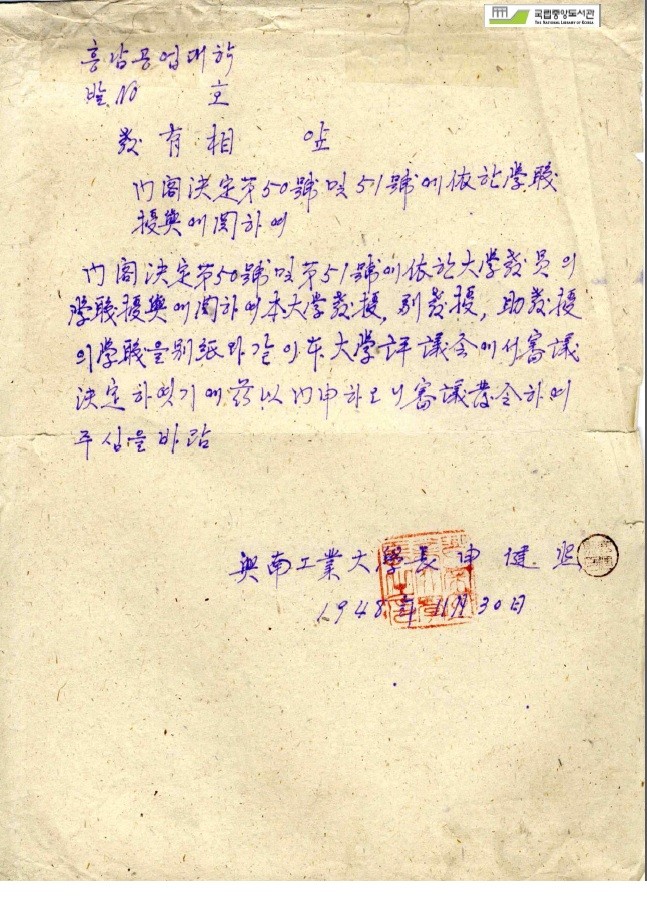 국립중앙도서관
THE NATIONAL LIBRARY OF KOREA
흥남공업대학
발 NO 호
敎育相 앞
內閣決定第50號및51號에依한学職
授與에関하여
內閣決定第50號및第51號에依한大学敎員의
学職授與에関하여本大学敎授, 副敎授, 助敎授
의学職을別紙와같이本大学評議会에서審議
決定하였기에玆以內申하오니審議發令하여
주심을바람
興南工業大學長 申健熙
1948年11月30日